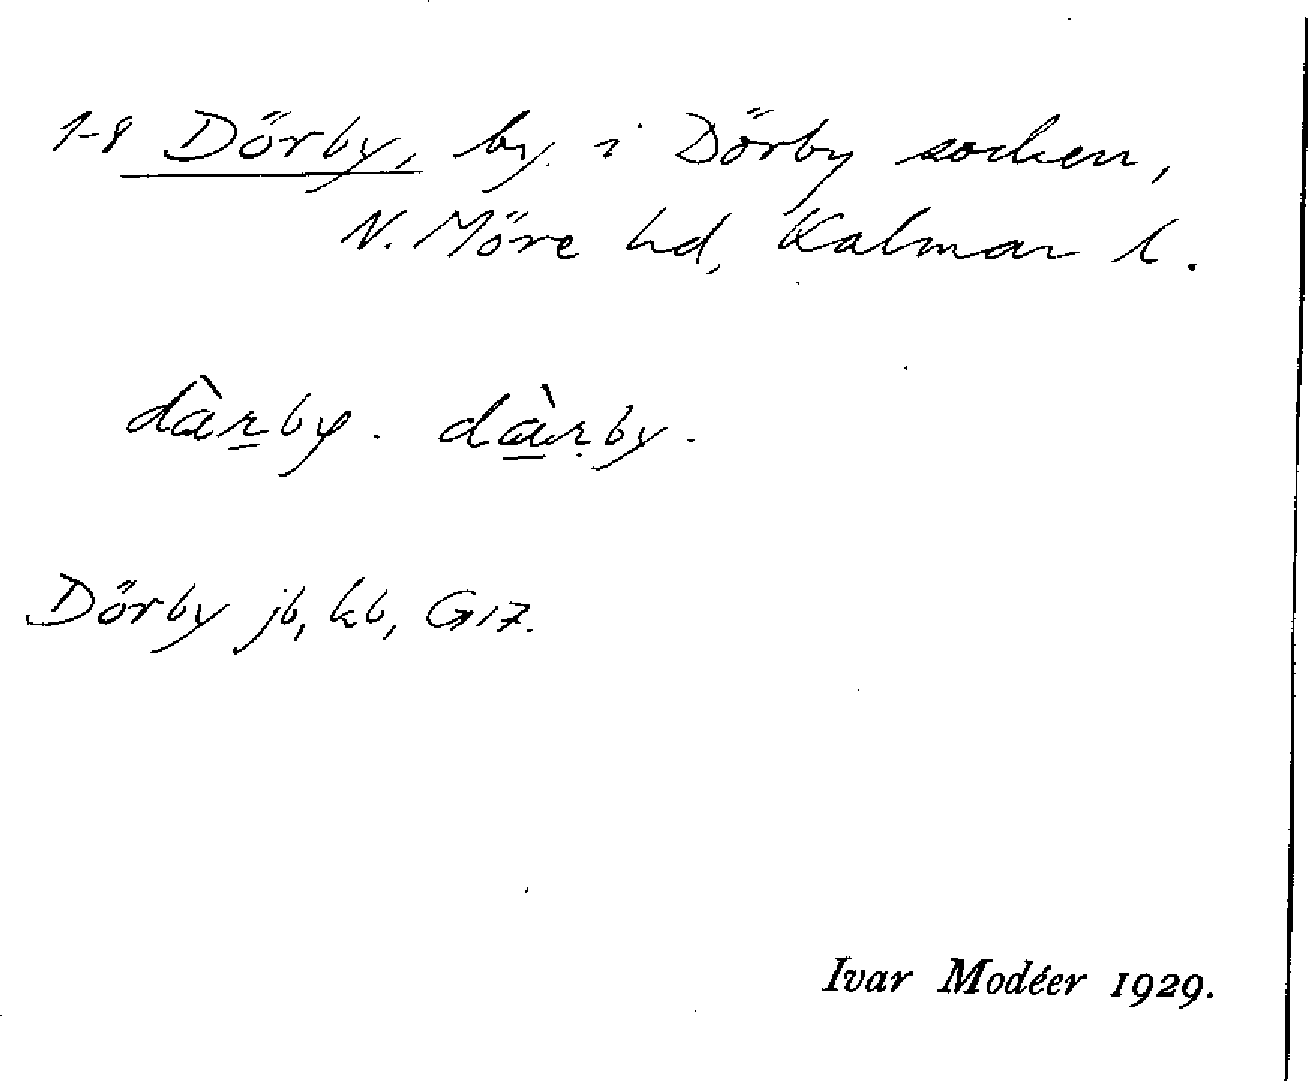 1-8 Dörby, by i Dörby socken,
N. Möre hd, Kalmar l.
dàrby. dàrby.
Dörby jb, kb, G17.
Ivar Modéer 1929.